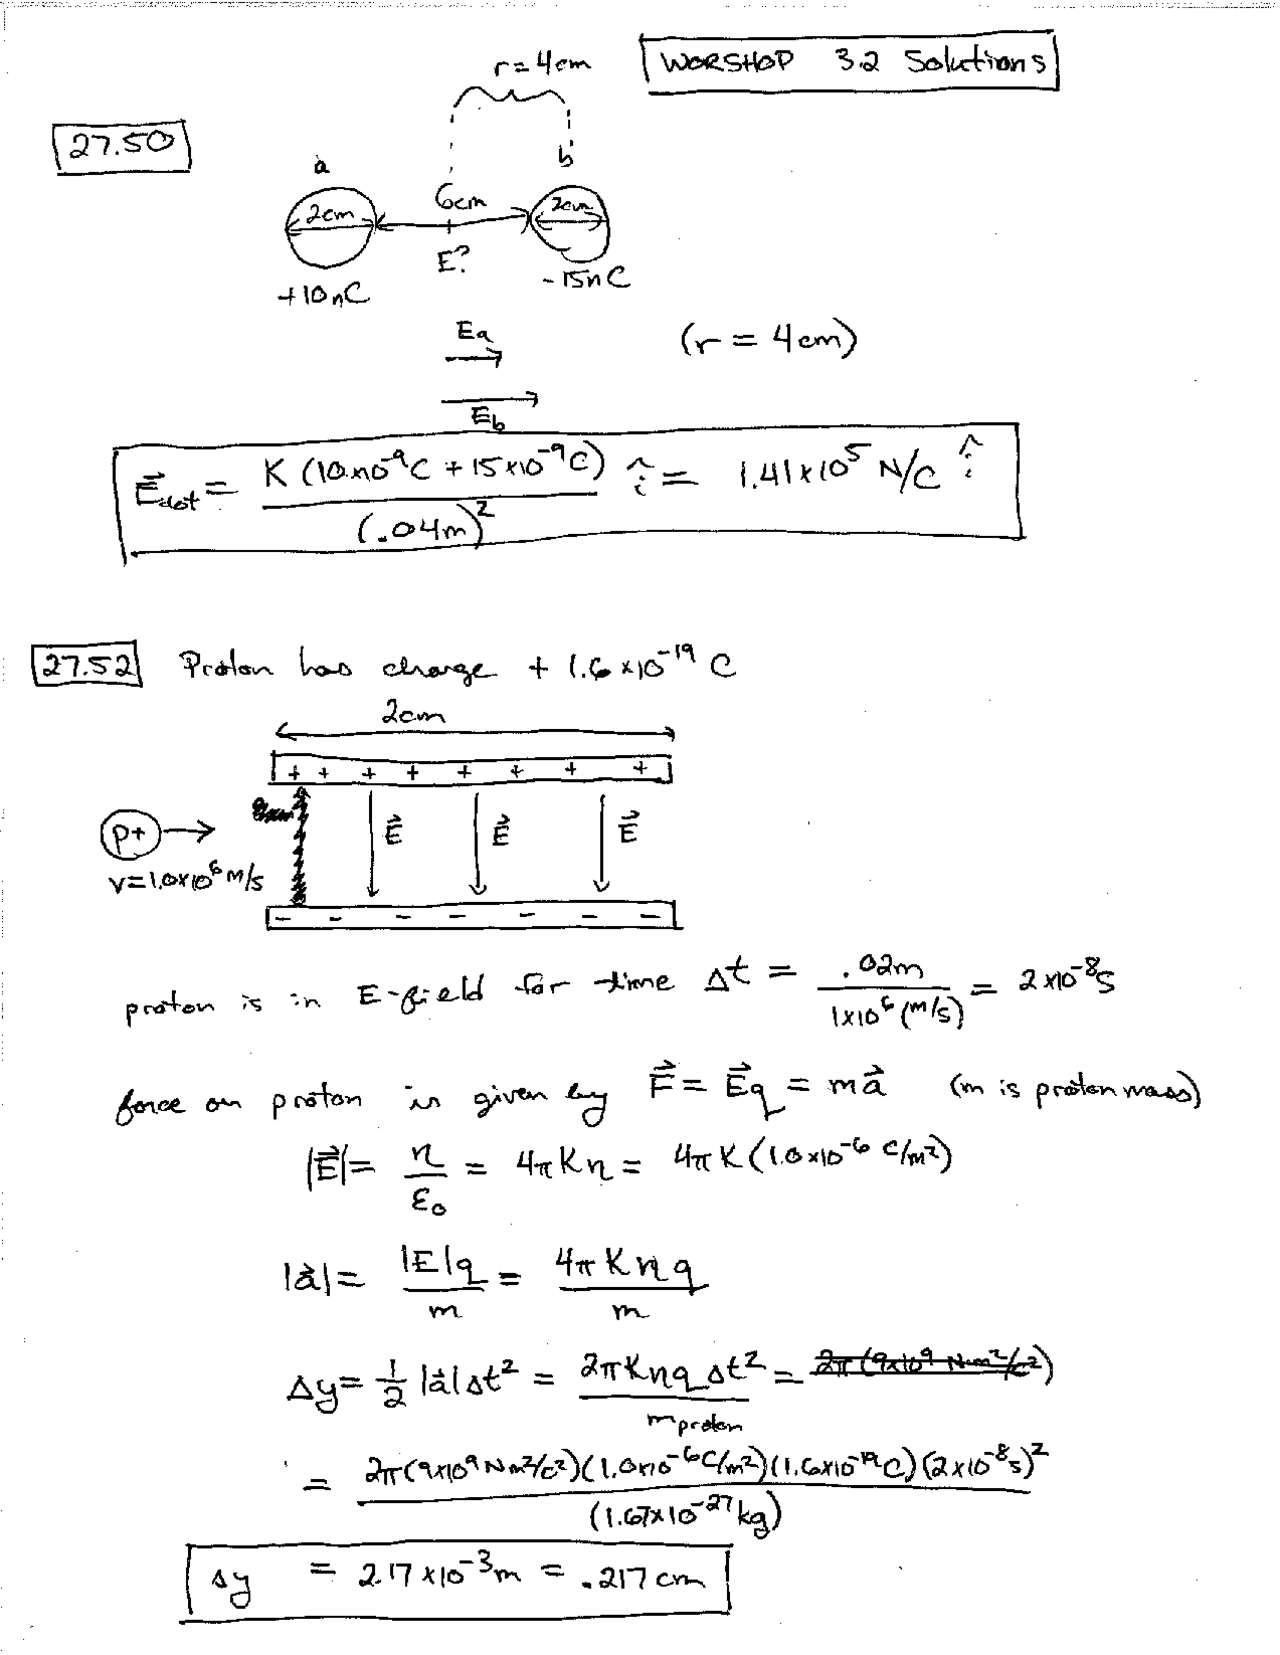 WORSHOP 3.2 Solutions
r = 4cm
27.50
a
b
2cm
6cm
2cm
E?
+10nC
-15nC
Ea
(r = 4cm)
Eb
E⃗tot = K (10×10⁻⁹C + 15×10⁻⁹C) / (.04m)² î = 1.41×10⁵ N/C î
27.52 Proton has charge + 1.6×10⁻¹⁹ C
2cm
+ + + + + + + +
p+
E⃗ E⃗ E⃗
v=1.0×10⁶ m/s
- - - - - - -
proton is in E-field for time Δt = .02m / 1×10⁶ (m/s) = 2×10⁻⁸s
force on proton is given by F⃗ = E⃗q = ma⃗ (m is proton mass)
|E⃗| = η/ε₀ = 4πKη = 4πK(1.0×10⁻⁶ C/m²)
|a⃗| = |E|q / m = 4πKηq / m
Δy = ½ |a⃗|Δt² = 2πKηqΔt² / mproton = 2π(9×10⁹ N·m²/C²)
= 2π(9×10⁹Nm²/C²)(1.0×10⁻⁶C/m²)(1.6×10⁻¹⁹C)(2×10⁻⁸s)² / (1.67×10⁻²⁷kg)
Δy = 2.17×10⁻³m = .217cm